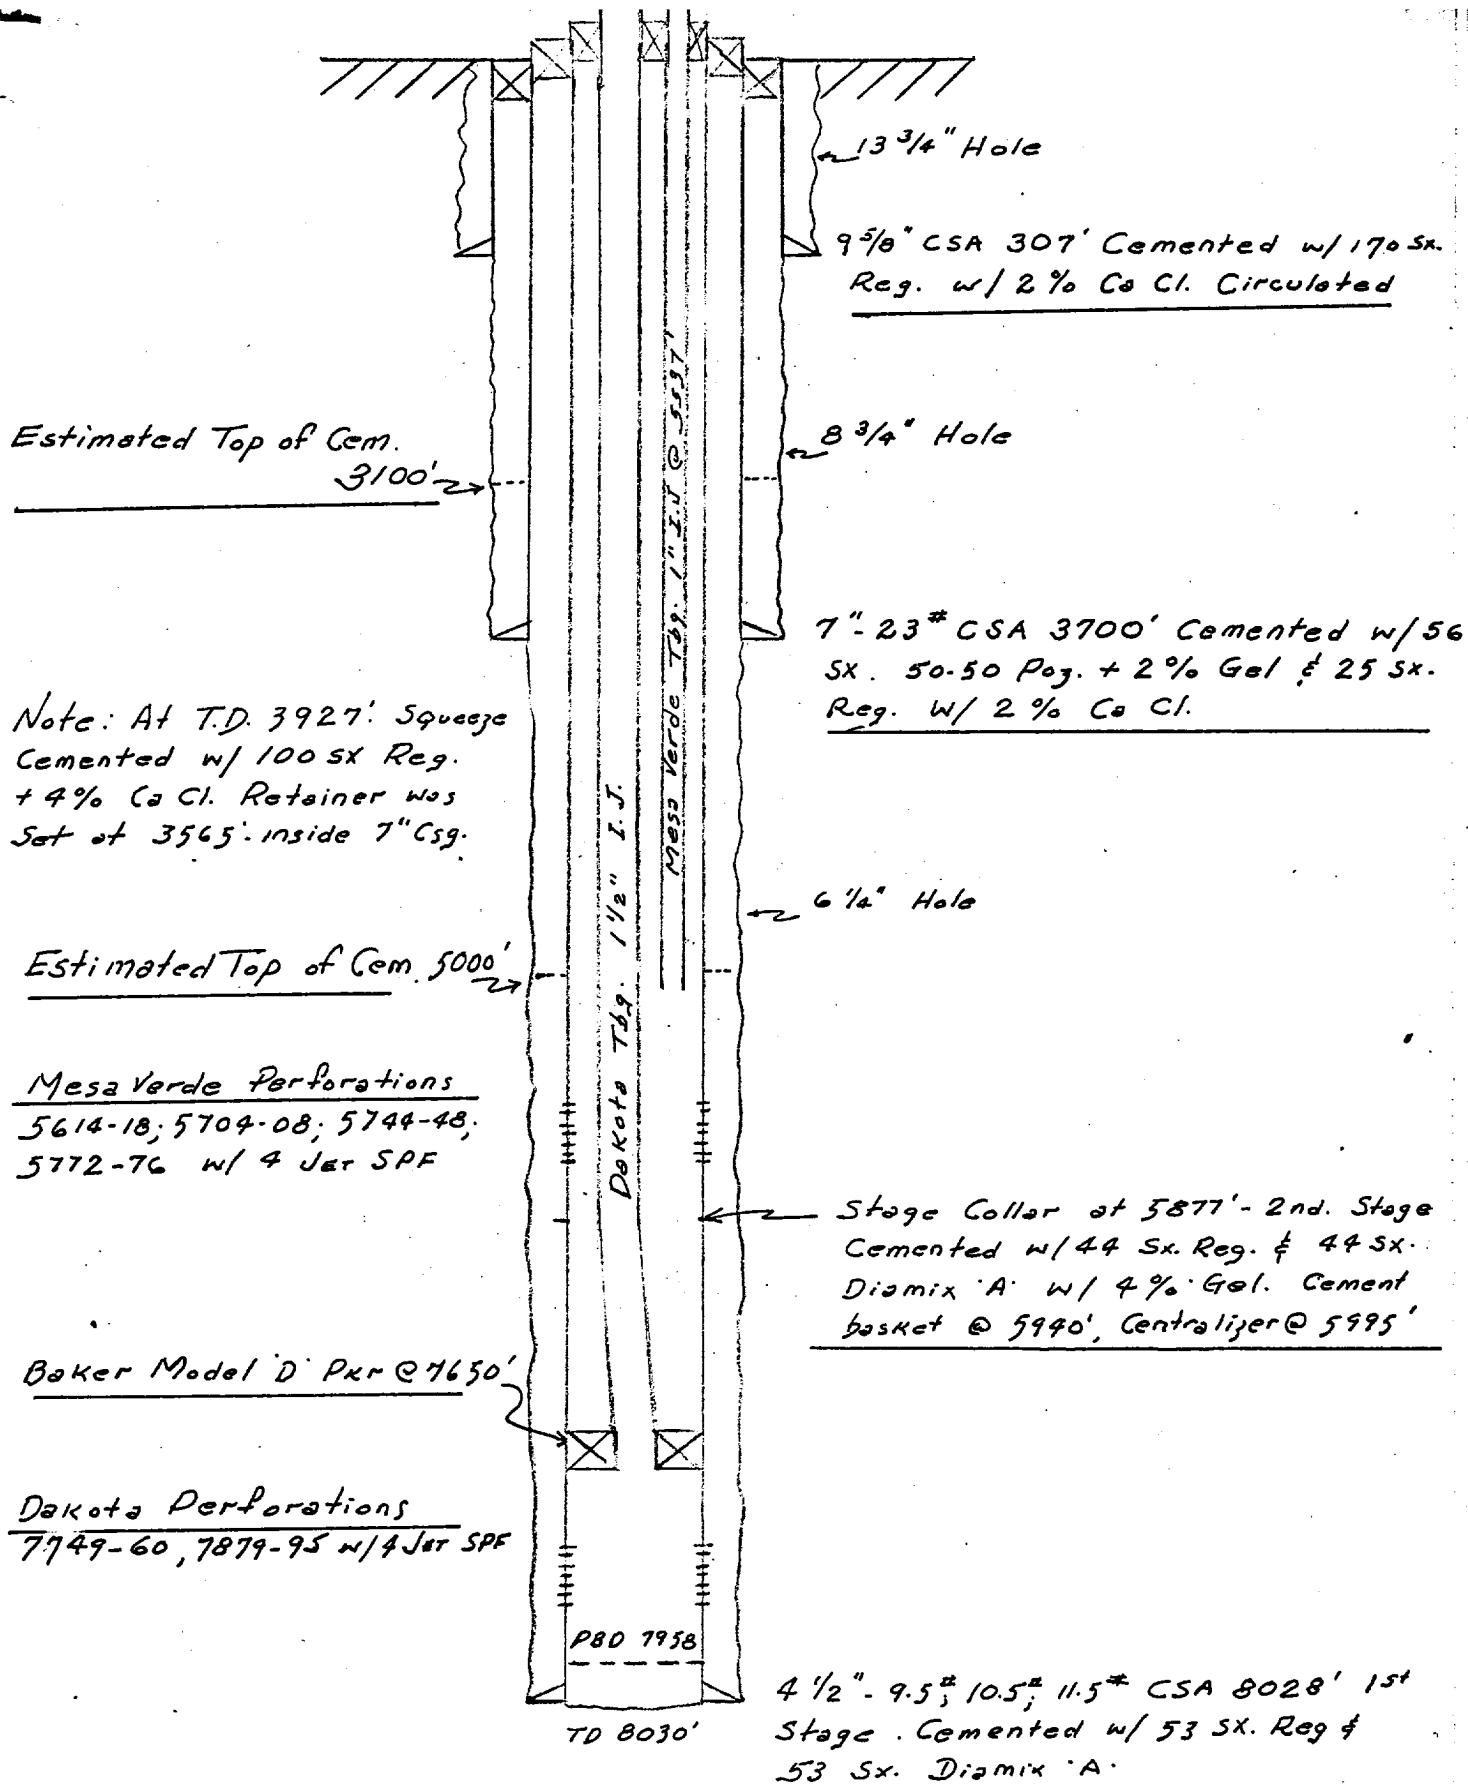 13 3/4" Hole
9 5/8" CSA 307' Cemented w/ 170 Sx.
Reg. w/ 2 % Ca Cl. Circulated
Estimated Top of Cem.
3100'
8 3/4" Hole
Mesa Verde Tbg. 1" I.J @ 5597'
7"- 23# CSA 3700' Cemented w/ 56
Sx. 50-50 Poz. + 2 % Gel & 25 Sx.
Reg. w/ 2 % Ca Cl.
Note: At T.D. 3927'. Squeeze
Cemented w/ 100 SX Reg.
+ 4% Ca Cl. Retainer was
Set at 3565'. inside 7" Csg.
6 1/4" Hole
Dakota Tbg. 1 1/2" I.J.
Estimated Top of Cem. 5000'
Mesa Verde Perforations
5614-18; 5704-08; 5744-48;
5772-76 w/ 4 Jet SPF
Stage Collar at 5877'- 2nd. Stage
Cemented w/ 44 Sx. Reg. & 44 Sx.
Diamix 'A' w/ 4 % Gel. Cement
basket @ 5940', Centralizer @ 5995'
Baker Model 'D' Pkr @ 7650'
Dakota Perforations
7749-60, 7879-95 w/ 4 Jet SPF
PBD 7958
TD 8030'
4 1/2"- 9.5#; 10.5#; 11.5# CSA 8028' 1st
Stage. Cemented w/ 53 SX. Reg &
53 Sx. Diamix 'A'